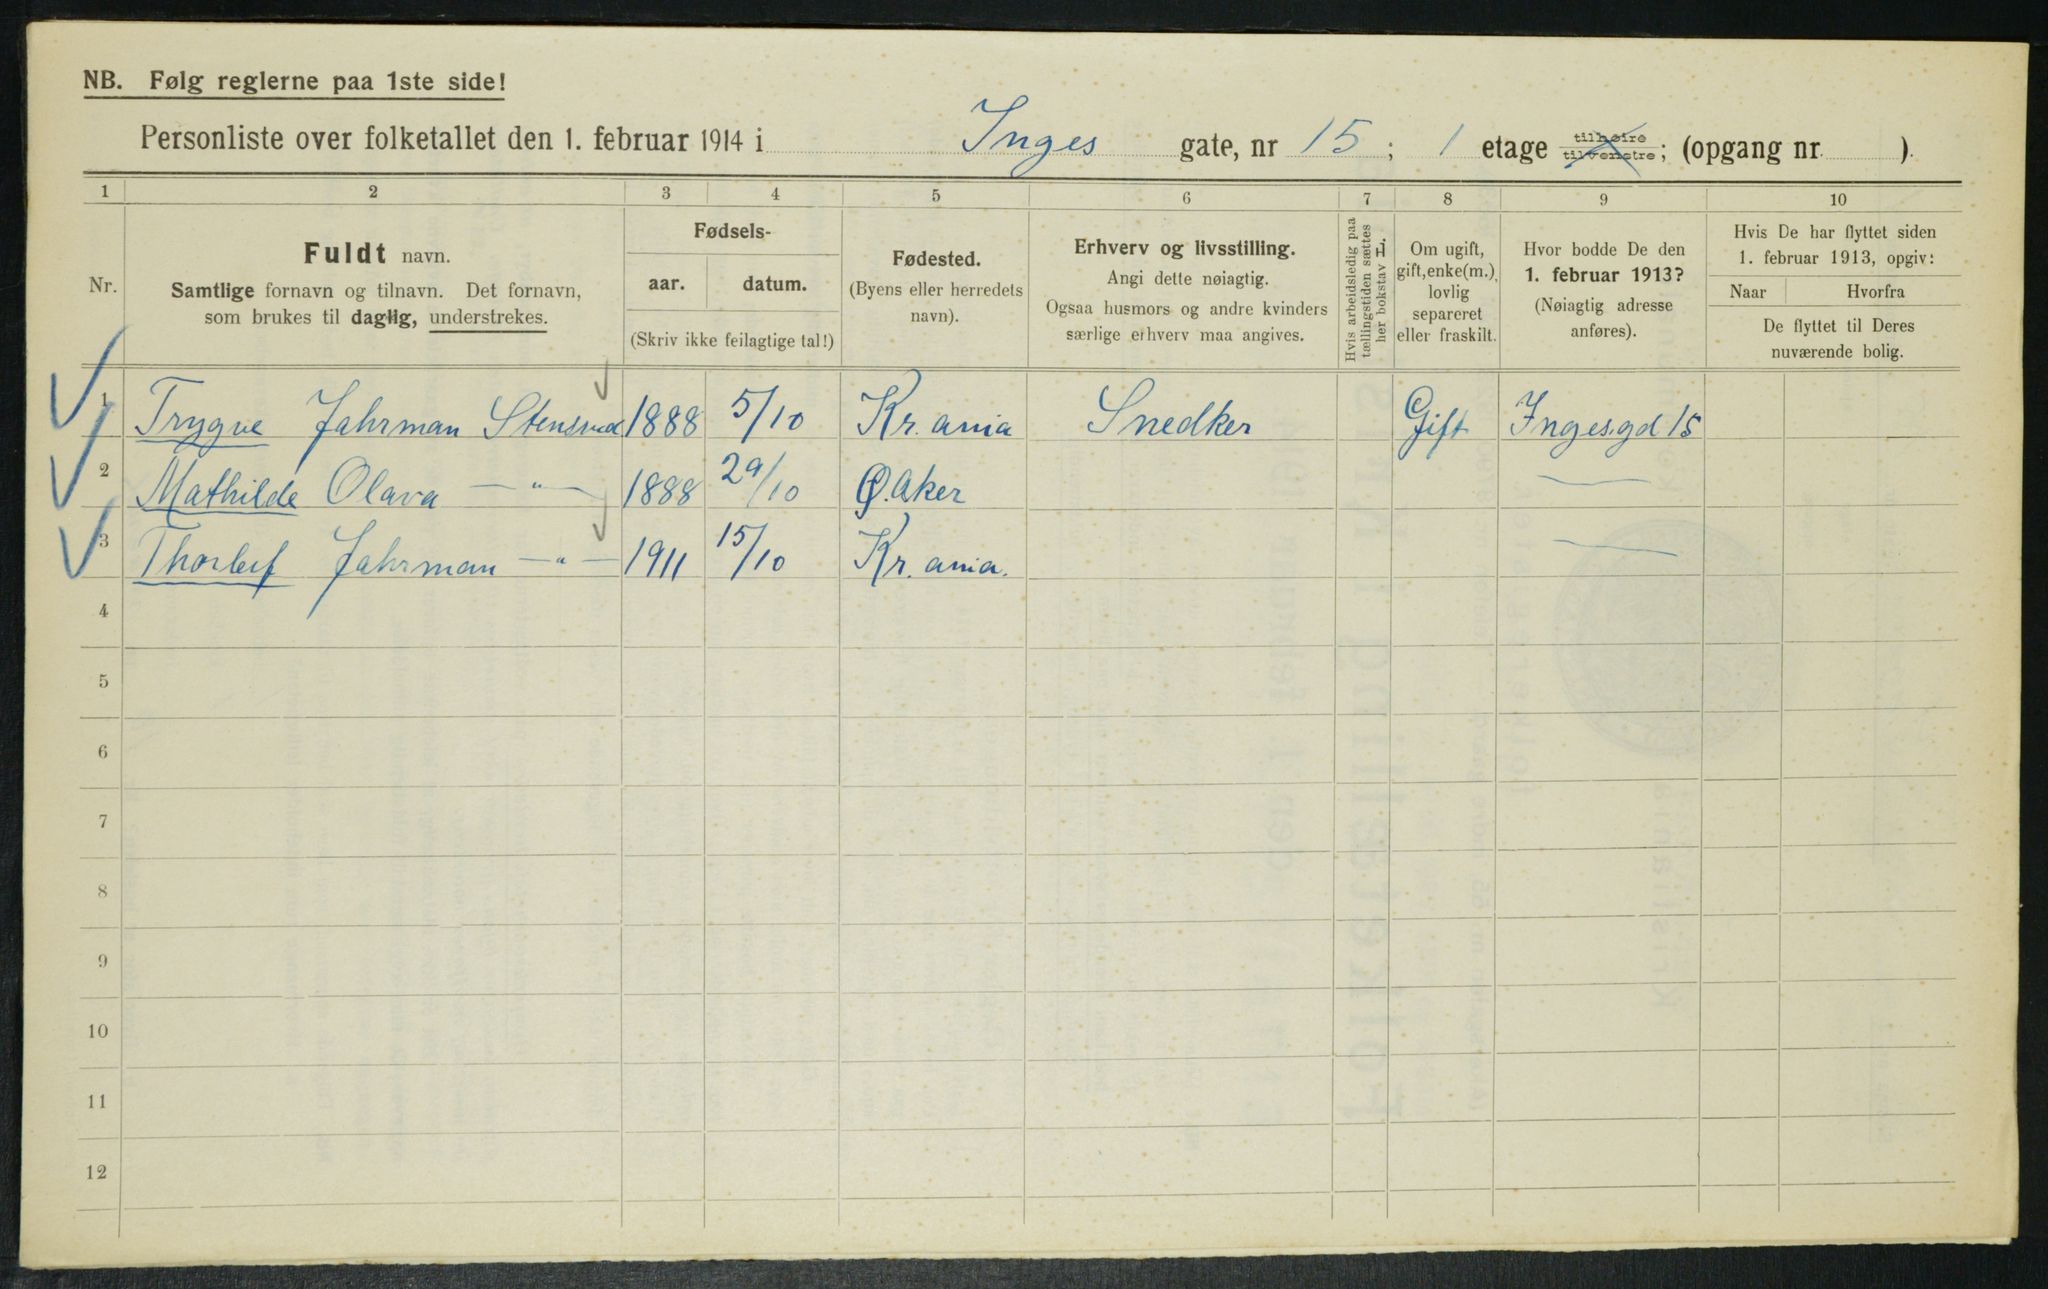 NB. Følg reglerne paa 1ste side!
Personliste over folketallet den 1. februar 1914 i Inges gate, nr 15; 1 etage tilhøire tilvenstre; (opgang nr. ).
1 2 3 4 5 6 7 8 9 10
Nr.
Fuldt navn.
Samtlige fornavn og tilnavn. Det fornavn,
som brukes til daglig, understrekes.
Fødsels-
aar. datum.
(Skriv ikke feilagtige tal!)
Fødested.
(Byens eller herredets
navn).
Erhverv og livsstilling.
Angi dette nøiagtig.
Ogsaa husmors og andre kvinders
særlige erhverv maa angives.
Hvis arbeidsledig paa
tællingstiden sættes
her bokstav L.
Om ugift,
gift, enke(m.),
lovlig
separeret
eller fraskilt.
Hvor bodde De den
1. februar 1913?
(Nøiagtig adresse
anføres).
Hvis De har flyttet siden
1. februar 1913, opgiv:
Naar Hvorfra
De flyttet til Deres
nuværende bolig.
1 Trygve Jahrman Stensrud 1888 5/10 Kr. ania Snedker Gift Ingesgd 15
2 Mathilde Olava — " — 1888 29/10 Ø. Aker —
3 Thorleif Jahrman — " — 1911 15/10 Kr. ania. —
4
5
6
7
8
9
10
11
12